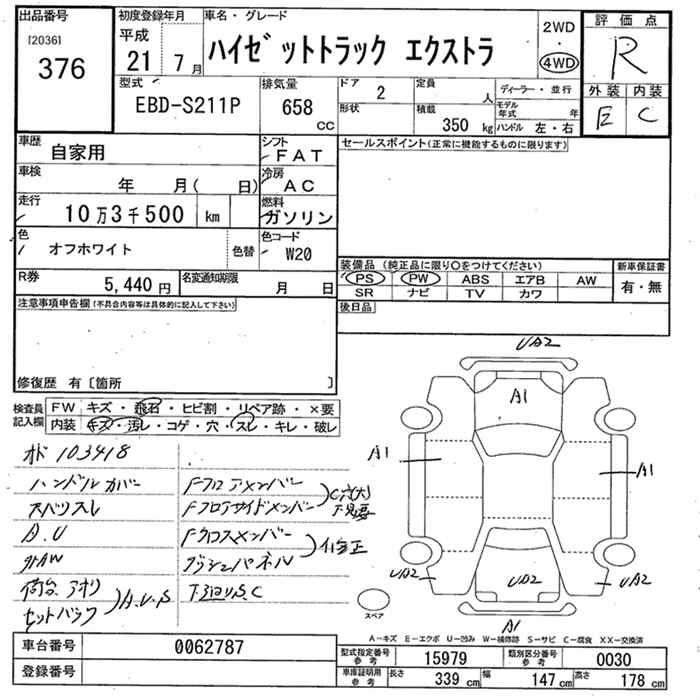 出品番号
[2036]
376
初度登録年月
平成
21 7月
車名・グレード
ハイゼットトラック エクストラ
2WD
・
4WD
評価点
R
外装 内装
E C
型式
EBD-S211P
排気量
658
cc
ドア 2
形状
定員 人
積載 350 kg
ディーラー・並行
モデル年式 年
ハンドル 左・右
車歴
自家用
シフト
FAT
車検
年 月( 日)
冷房
AC
走行
10万3千500 km
燃料
ガソリン
色
オフホワイト
色替
色コード
W20
R券
5,440 円
名変通知期限
月 日
セールスポイント(正常に機能するものに限ります)
装備品 (純正品に限り○をつけてください)
PS PW ABS エアB AW
SR ナビ TV カワ
新車保証書
有・無
後日品
注意事項申告欄(不具合内容等は具体的に記入して下さい)
修復歴 有〔箇所 〕
検査員記入欄
FW キズ・飛石・ヒビ割・リペア跡・×要
内装 キズ・汚レ・コゲ・穴・スレ・キレ・破レ
オド 103418
ハンドルカバー
A.U
外AW
荷台 アオリ
セットバック
A.U.S
Fフロアメンバー
Fフロアサイドメンバー
C穴(大)
下見要
Fクロスメンバー
ダッシュパネル
修正
下廻りS.C
UA2
A1
A1
A1
UA2
UA2
UA2
A1
スペア
A-キズ E-エクボ U-凹み W-補修跡 S-サビ C-腐食 XX-交換済
車台番号
0062787
登録番号
型式指定番号 参考
15979
類別区分番号 参考
0030
車庫証明用 参考
長さ 339 cm
幅 147 cm
高さ 178 cm